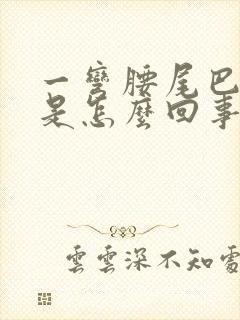 一彎腰尾巴
是怎麼回事
雲雲深不知處